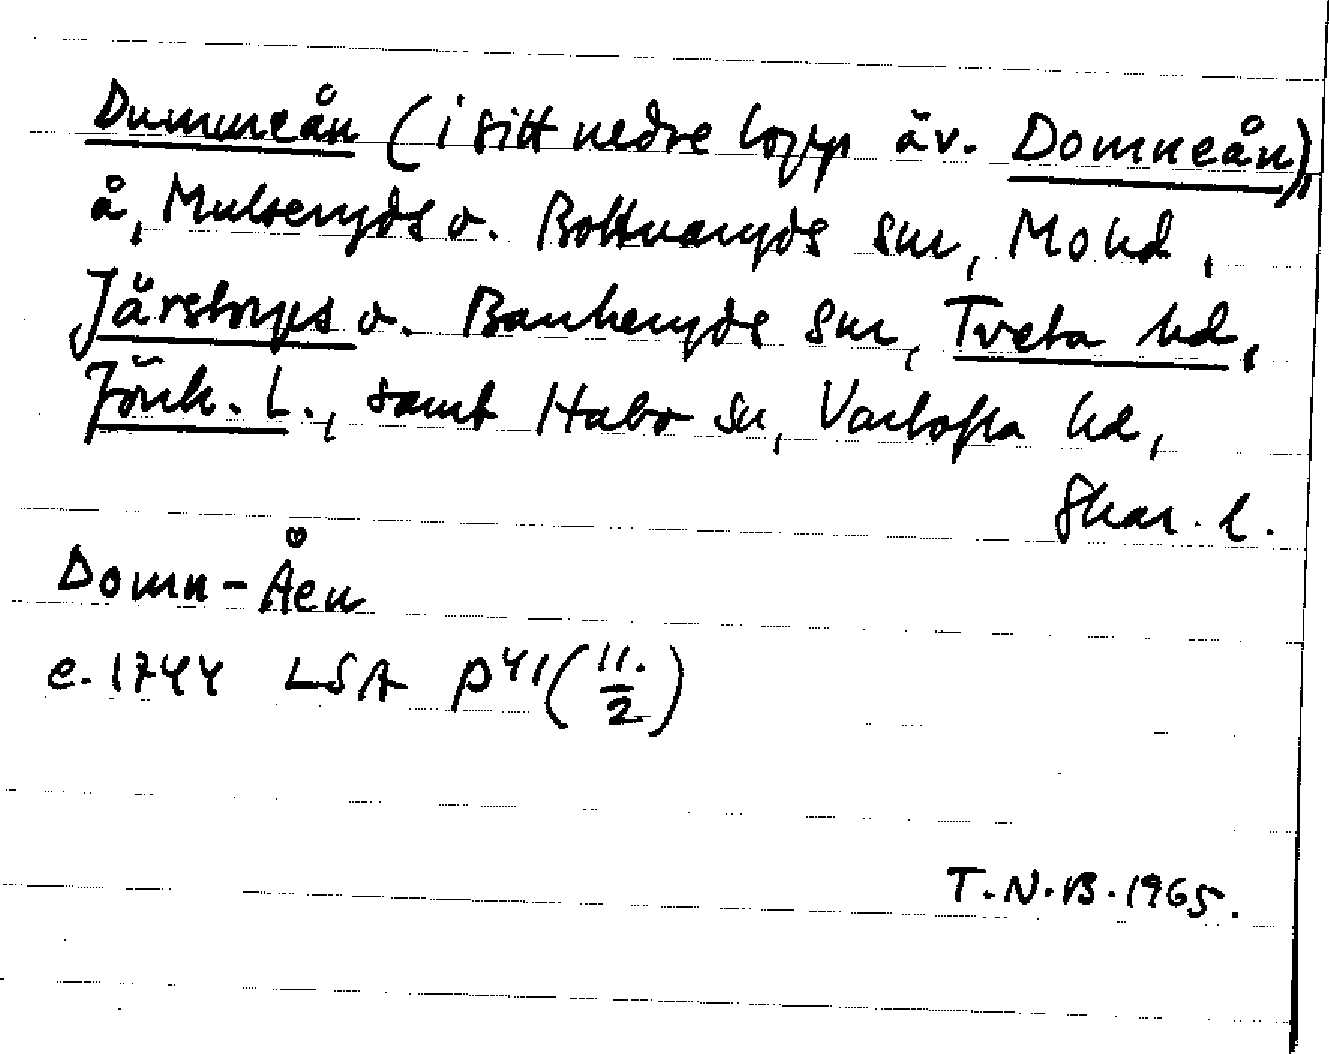 Dummeån (i sitt nedre lopp äv. Domneån),
å, Mulseryds o. Bottnaryds snr, Mo hd,
Järstorps o. Bankeryds snr, Tveta hd,
Jönk. l., samt Habo sn, Vartofta hd,
Skar. l.
Domn-Åen
c. 1744 LSA P 41 (11./2)
T.N.B. 1965.